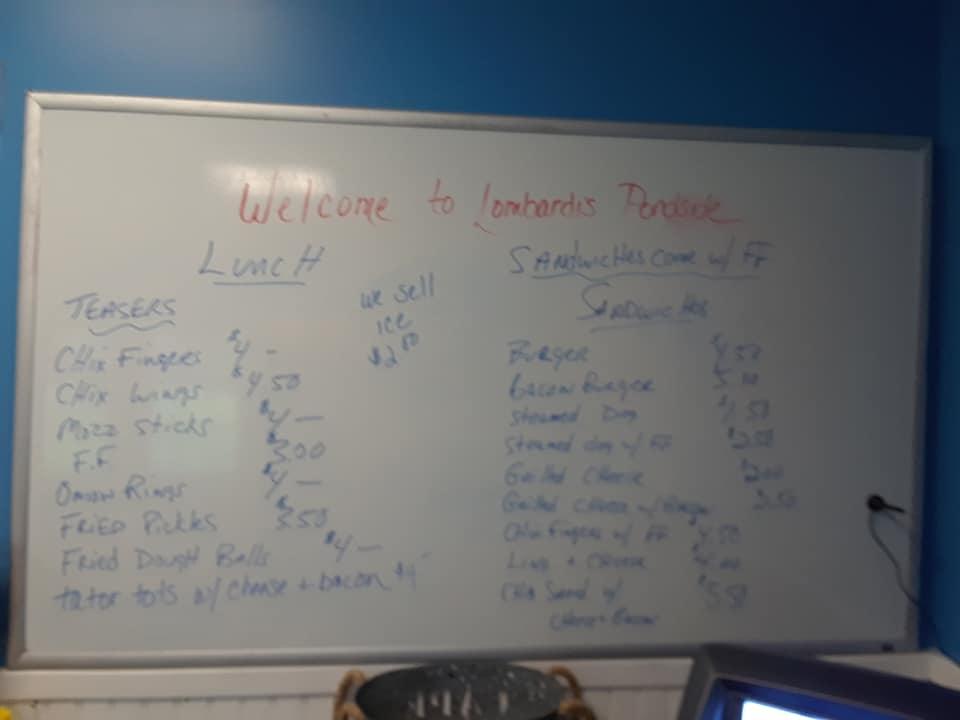 Welcome to Lombardis Pondside
LUNCH
TEASERS
CHix Fingers $4 -
CHix Wings $4.50
Mozz Sticks $4 —
F.F $3.00
Onion Rings $4 —
FRIED Pickles $3.50
Fried Dough Balls $4 —
tator tots w/ cheese + bacon $4 -
we sell
ice
$2.00
SANDwicHes come w/ FF
SANDwicHes
BurgeR $4.50
bacon Burger
Steamed Dog $1.50
Steamed dog w/ FF $2.50
Grilled CHeese $2.00
Grilled cheese w/
CHix Fingers w/ FF $4.50
$4.00
CHix Sand w/ $5.50
CHeese + Bacon